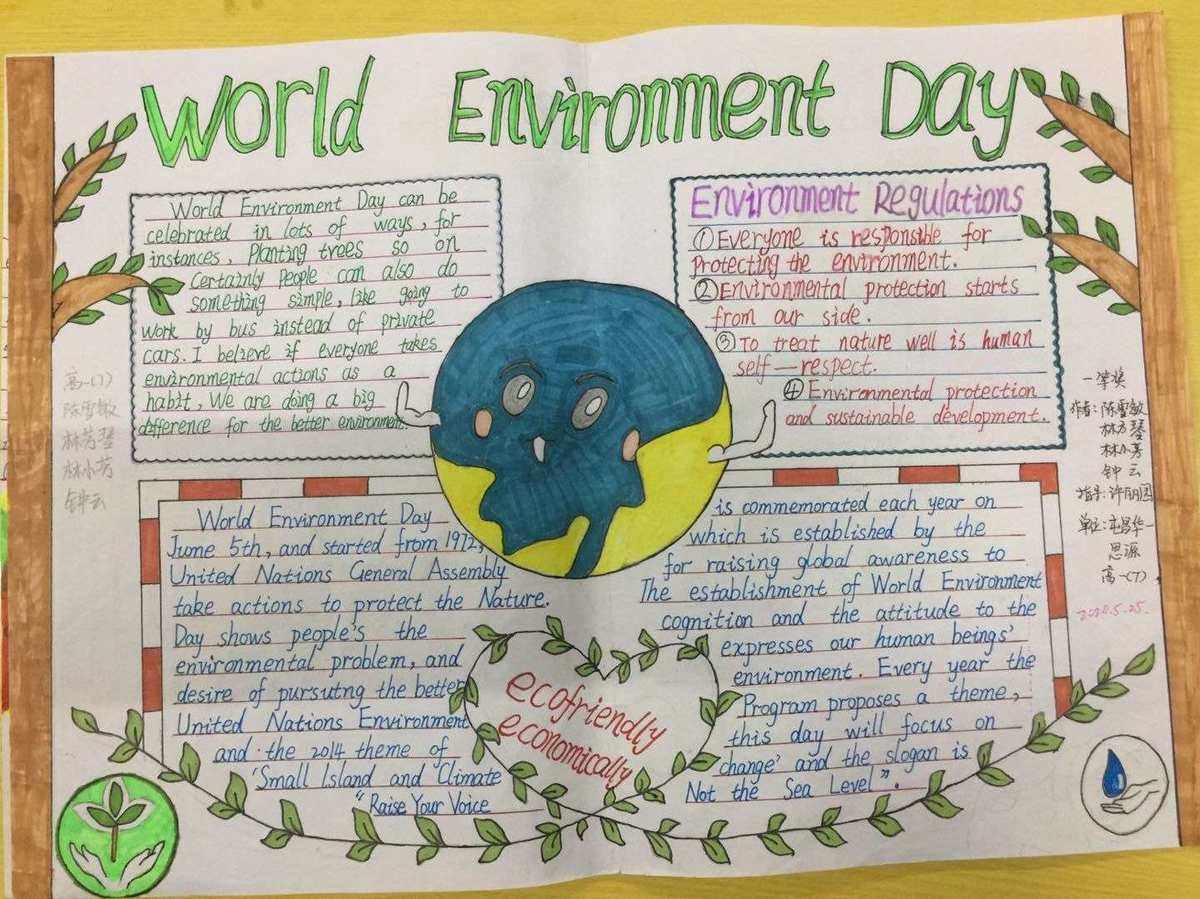 World Environment Day
World Environment Day can be
celebrated in lots of ways, for
instances, Planting trees so on
Certainly people can also do
something simple, like going to
work by bus instead of private
cars. I believe if everyone takes
environmental actions as a
habit, We are doing a big
difference for the better environment.
Environment Regulations
①Everyone is responsible for
Protecting the environment.
②Environmental protection starts
from our side.
③To treat nature well is human
self—respect.
④Environmental protection
and sustainable development.
World Environment Day is commemorated each year on
June 5th, and started from 1972, which is established by the
United Nations General Assembly for raising global awareness to
take actions to protect the Nature. The establishment of World Environment
Day shows people's the cognition and the attitude to the
environmental problem, and expresses our human beings'
desire of pursutng the better environment. Every year the
United Nations Environment Program proposes a theme,
and the 2014 theme of this day will focus on
'Small Island and Climate change' and the slogan is
"Raise Your Voice Not the Sea Level".
ecofriendly
economically
高一(7)
陈雪敏
林芳琴
林小芳
钟云
一等奖
作者:陈雪敏
林方琴
林小芳
钟云
指导:许
单位:屯昌华
思源
高一(7)
2020.5.25.